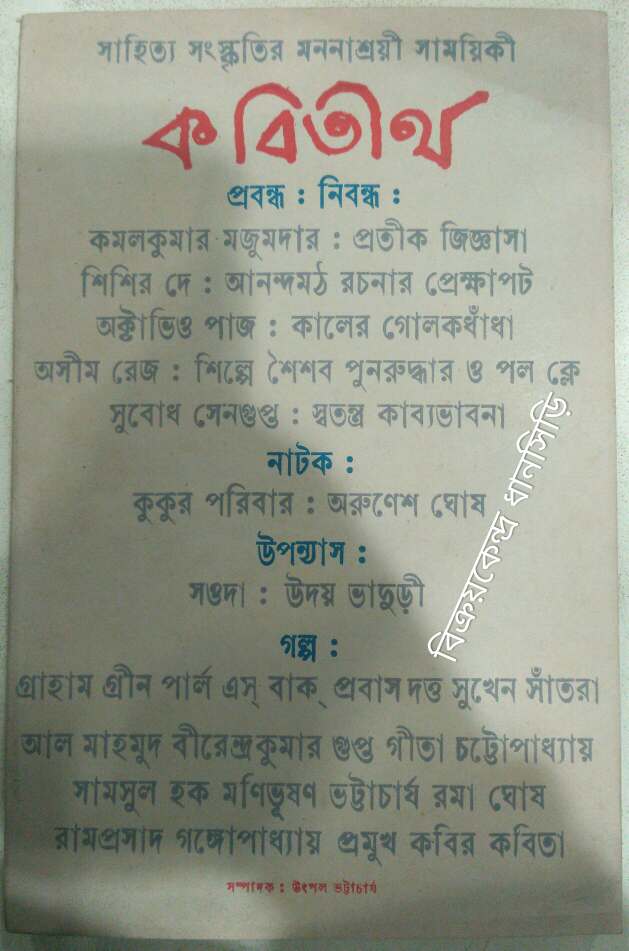 সাহিত্য সংস্কৃতির মননাশ্রয়ী সাময়িকী
কবিতীর্থ
প্রবন্ধ : নিবন্ধ :
কমলকুমার মজুমদার : প্রতীক জিজ্ঞাসা
শিশির দে : আনন্দমঠ রচনার প্রেক্ষাপট
অক্টাভিও পাজ : কালের গোলকধাঁধা
অসীম রেজ : শিল্পে শৈশব পুনরুদ্ধার ও পল ক্লে
সুবোধ সেনগুপ্ত : স্বতন্ত্র কাব্যভাবনা
নাটক :
কুকুর পরিবার : অরুণেশ ঘোষ
উপন্যাস :
সওদা : উদয় ভাদুড়ী
গল্প :
গ্রাহাম গ্রীন পার্ল এস্ বাক্ প্রবাস দত্ত সুখেন সাঁতরা
আল মাহমুদ বীরেন্দ্রকুমার গুপ্ত গীতা চট্টোপাধ্যায়
সামসুল হক মণিভূষণ ভট্টাচার্য রমা ঘোষ
রামপ্রসাদ গঙ্গোপাধ্যায় প্রমুখ কবির কবিতা
সম্পাদক : উৎপল ভট্টাচার্য
বিক্রয়কেন্দ্র ধানসিড়ি